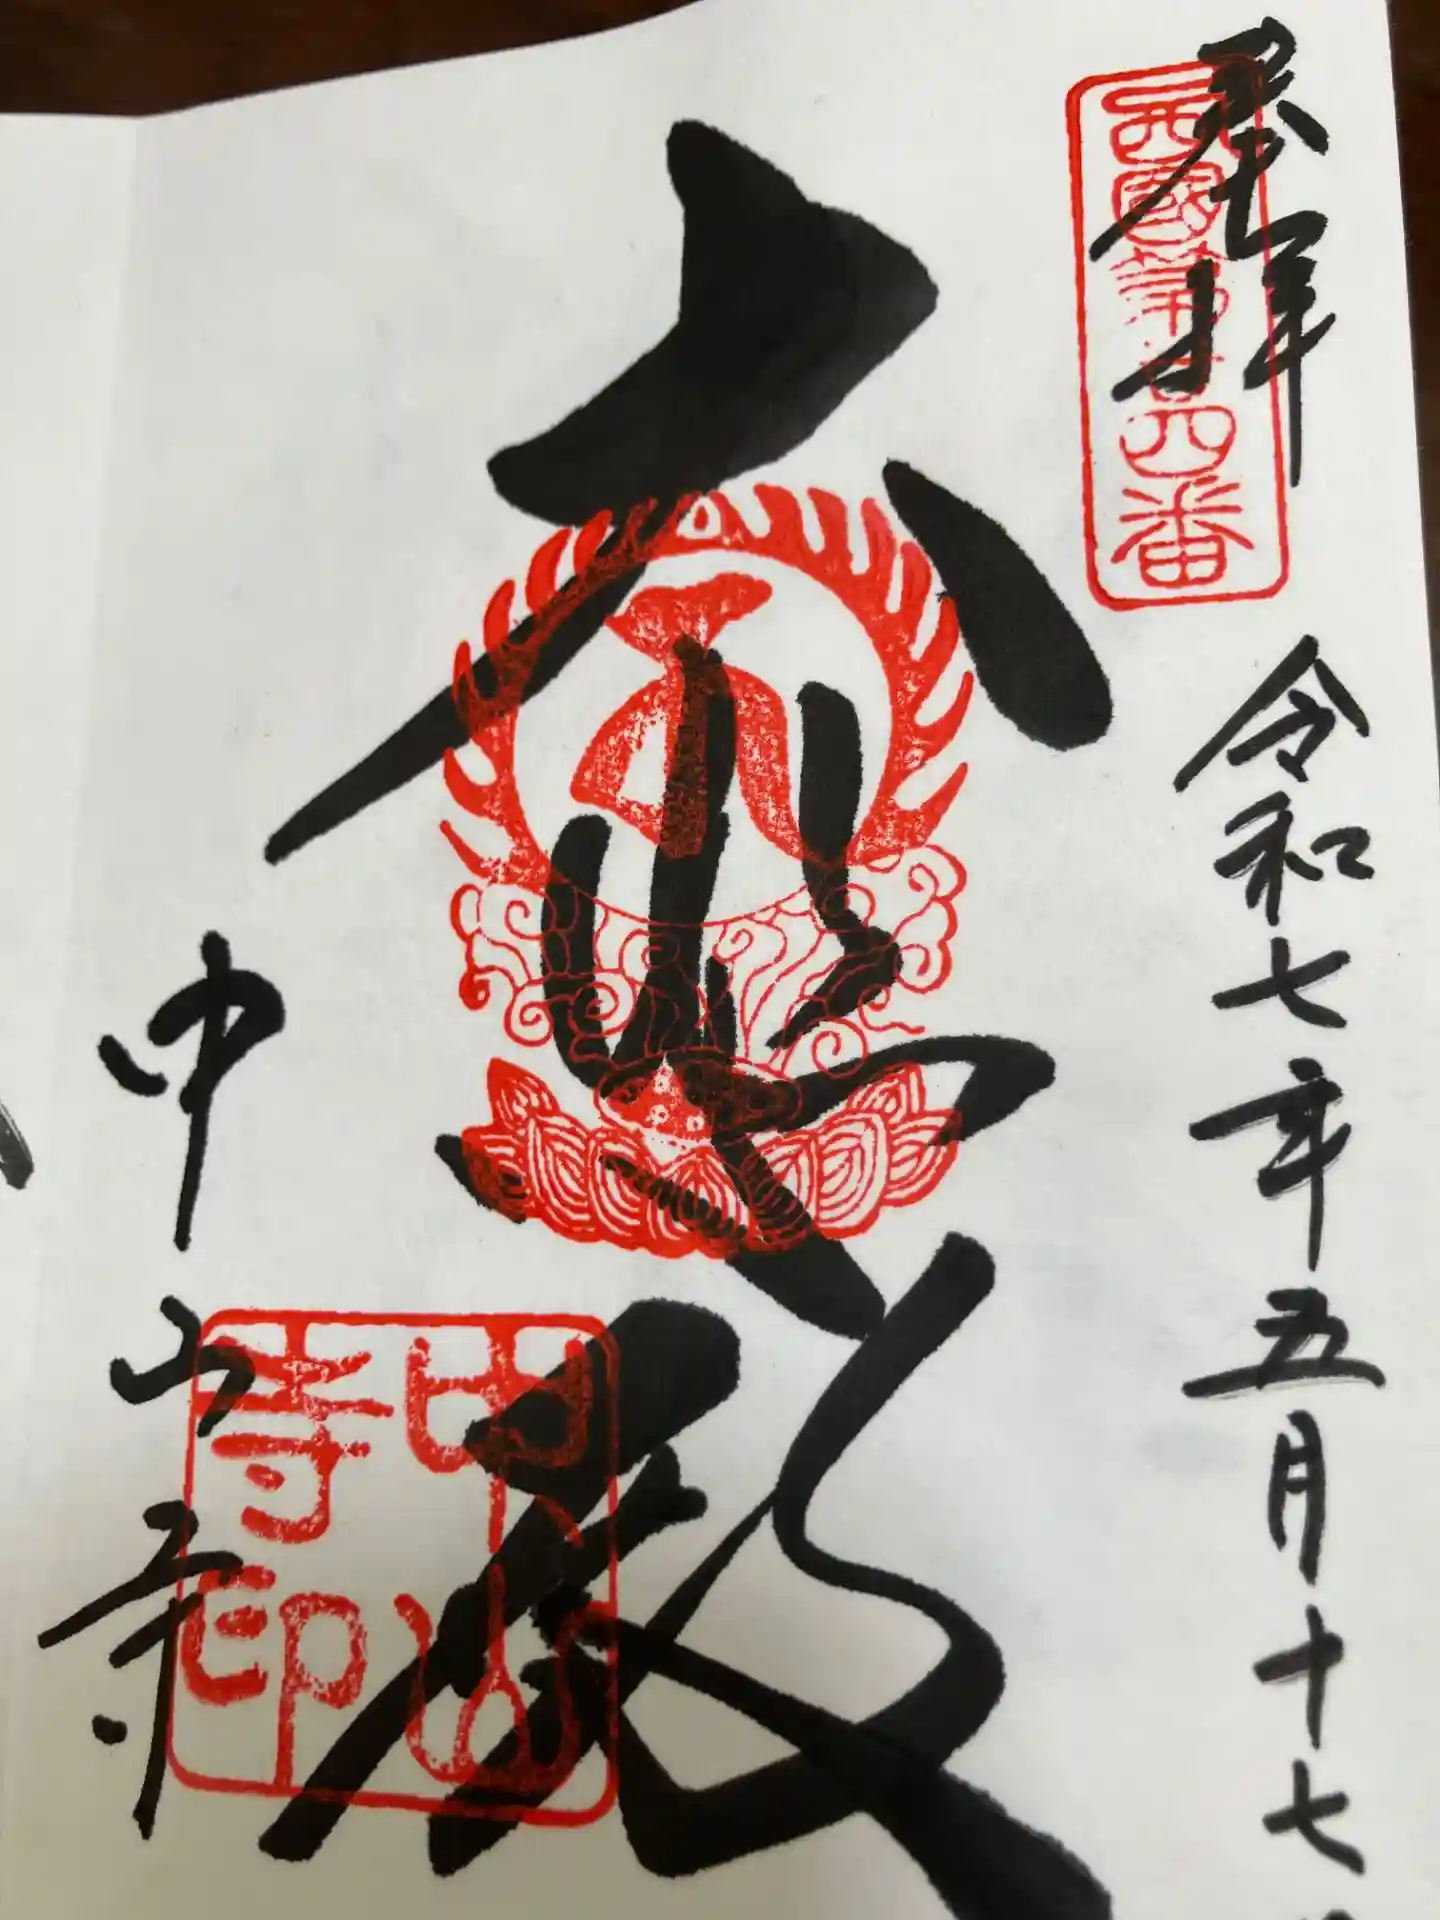 奉拝
西國第廿四番
令和七年五月十七
大悲殿
中山寺
中山寺印